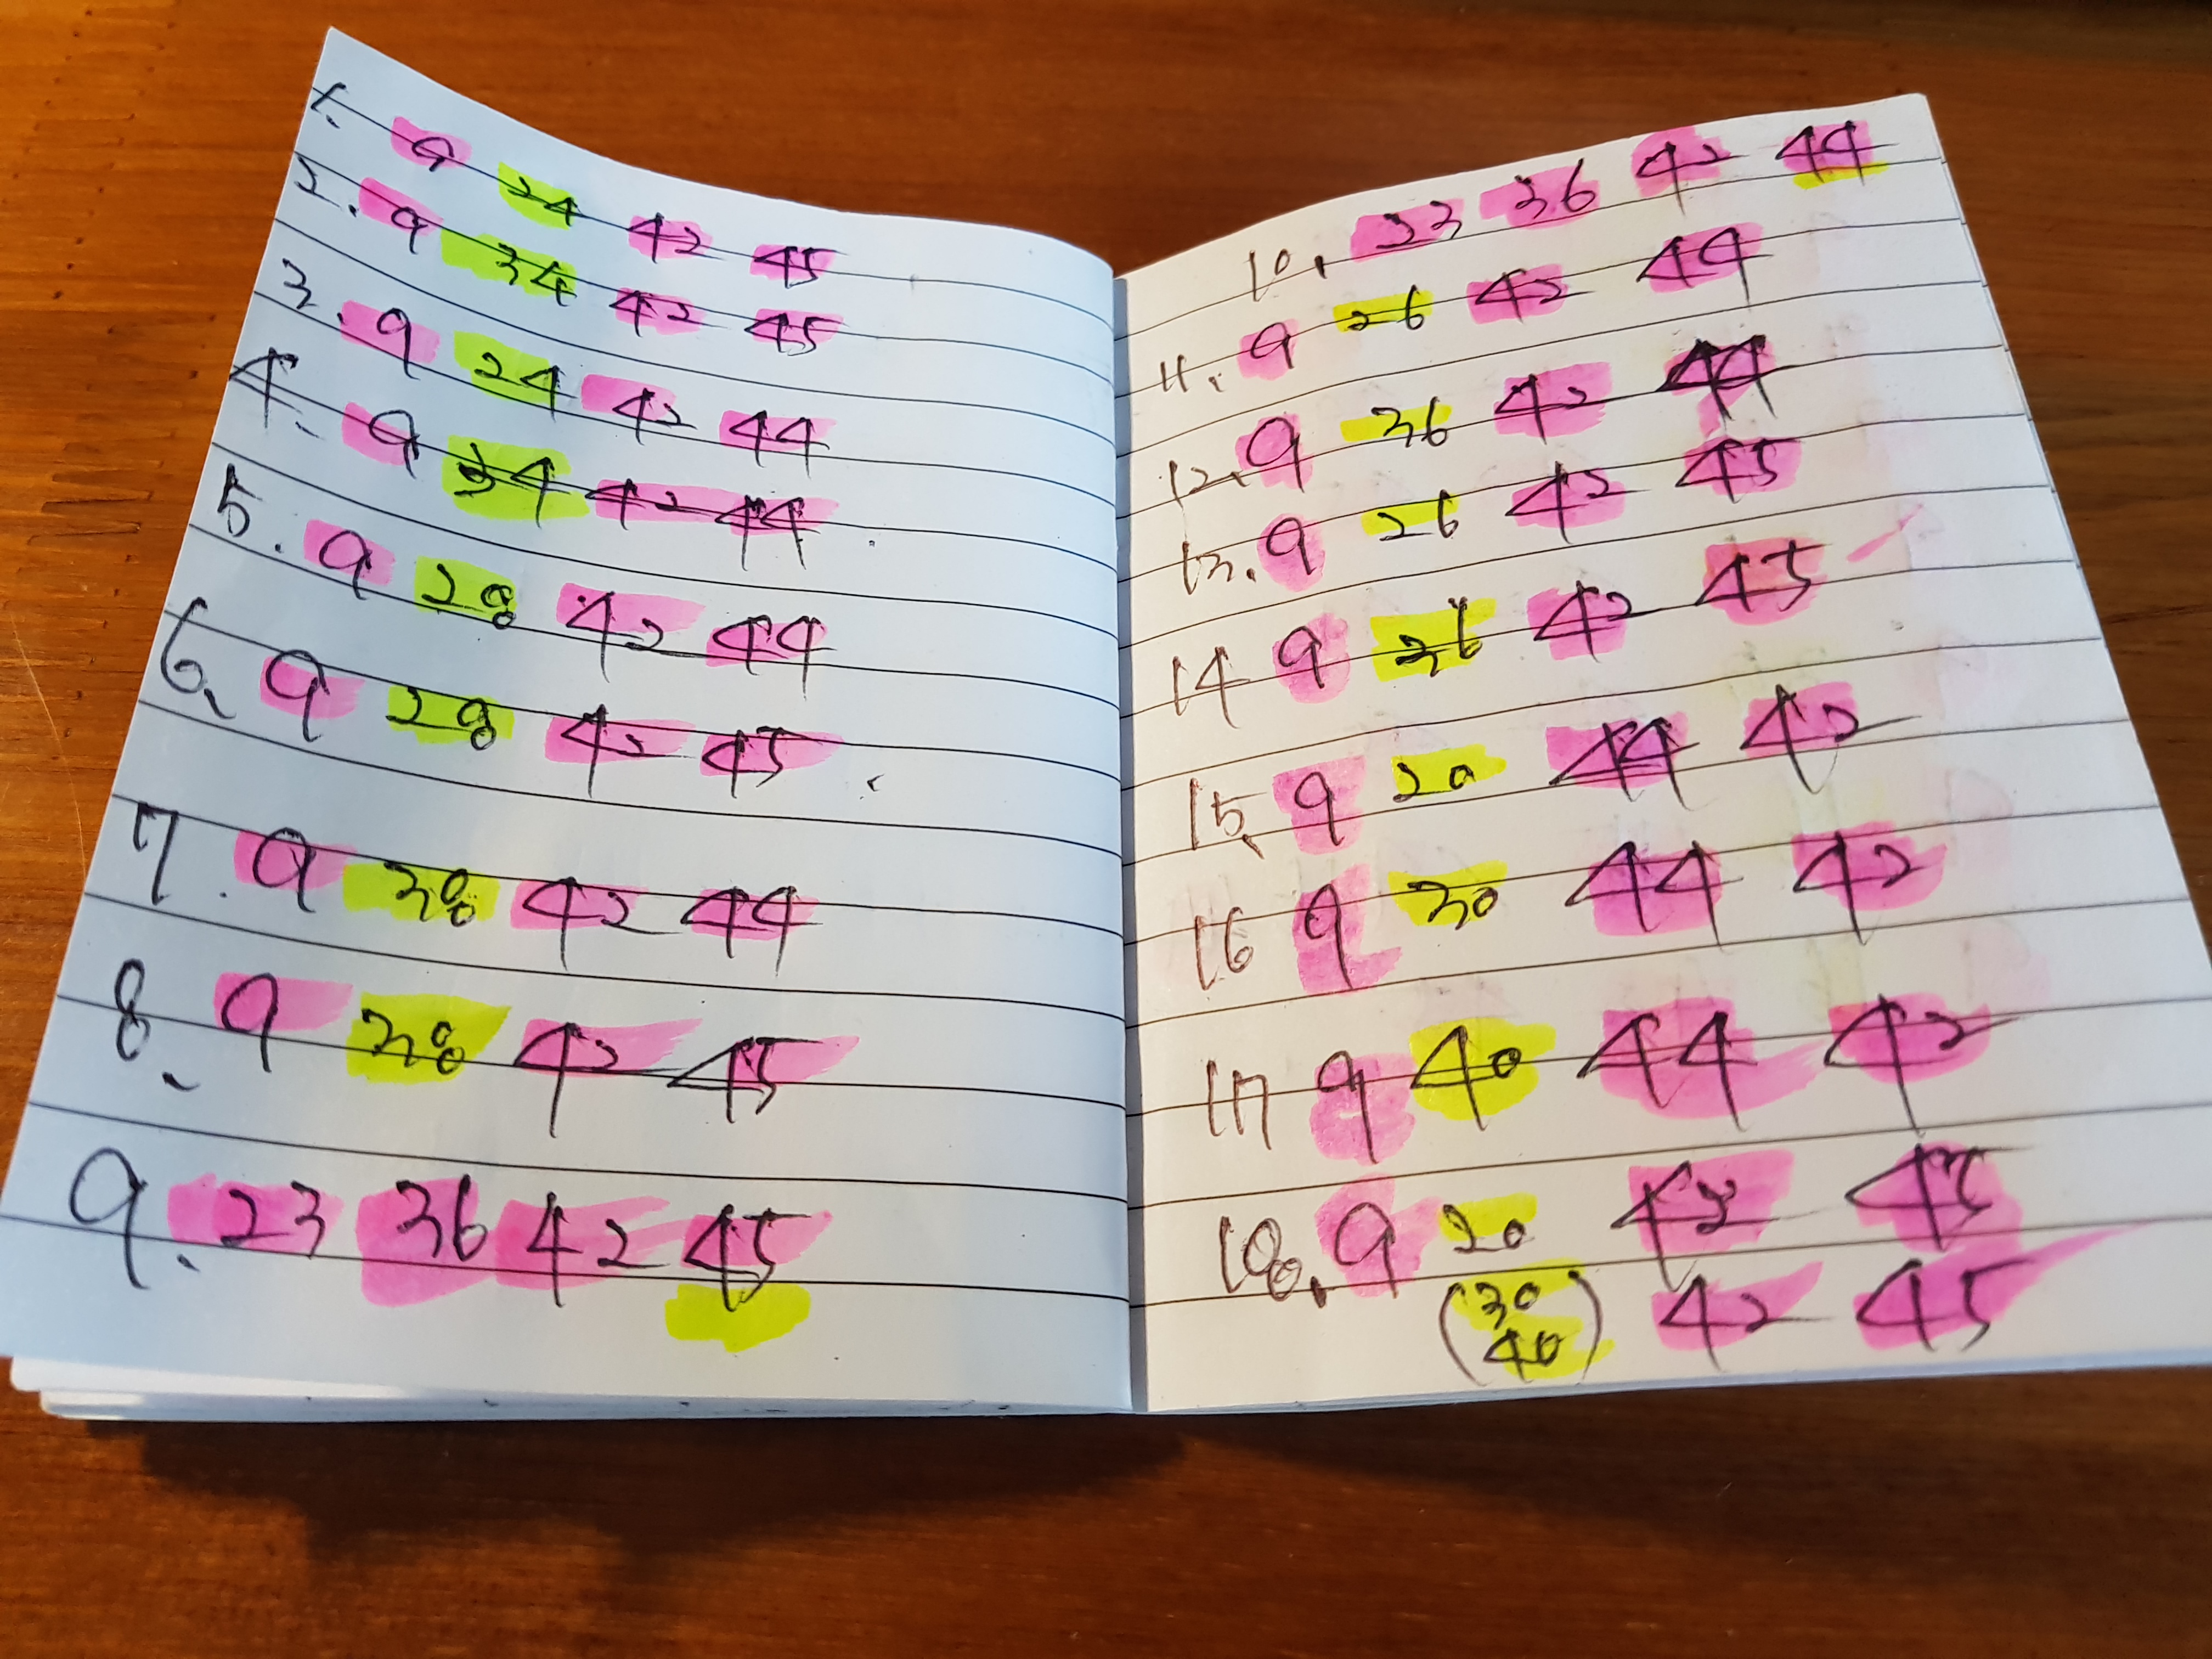 1. 9 24 42 45
2. 9 34 42 45
3. 9 24 42 44
4. 9 34 42 44
5. 9 28 42 44
6. 9 28 42 45
7. 9 38 42 44
8. 9 38 42 45
9. 23 36 42 45
10. 23 36 42 44
11. 9 26 42 44
12. 9 36 42 44
13. 9 26 42 45
14 9 36 42 45
15. 9 20 44 42
16 9 30 44 42
17 9 40 44 42
18. 9 20 42 45
(30 40) 42 45